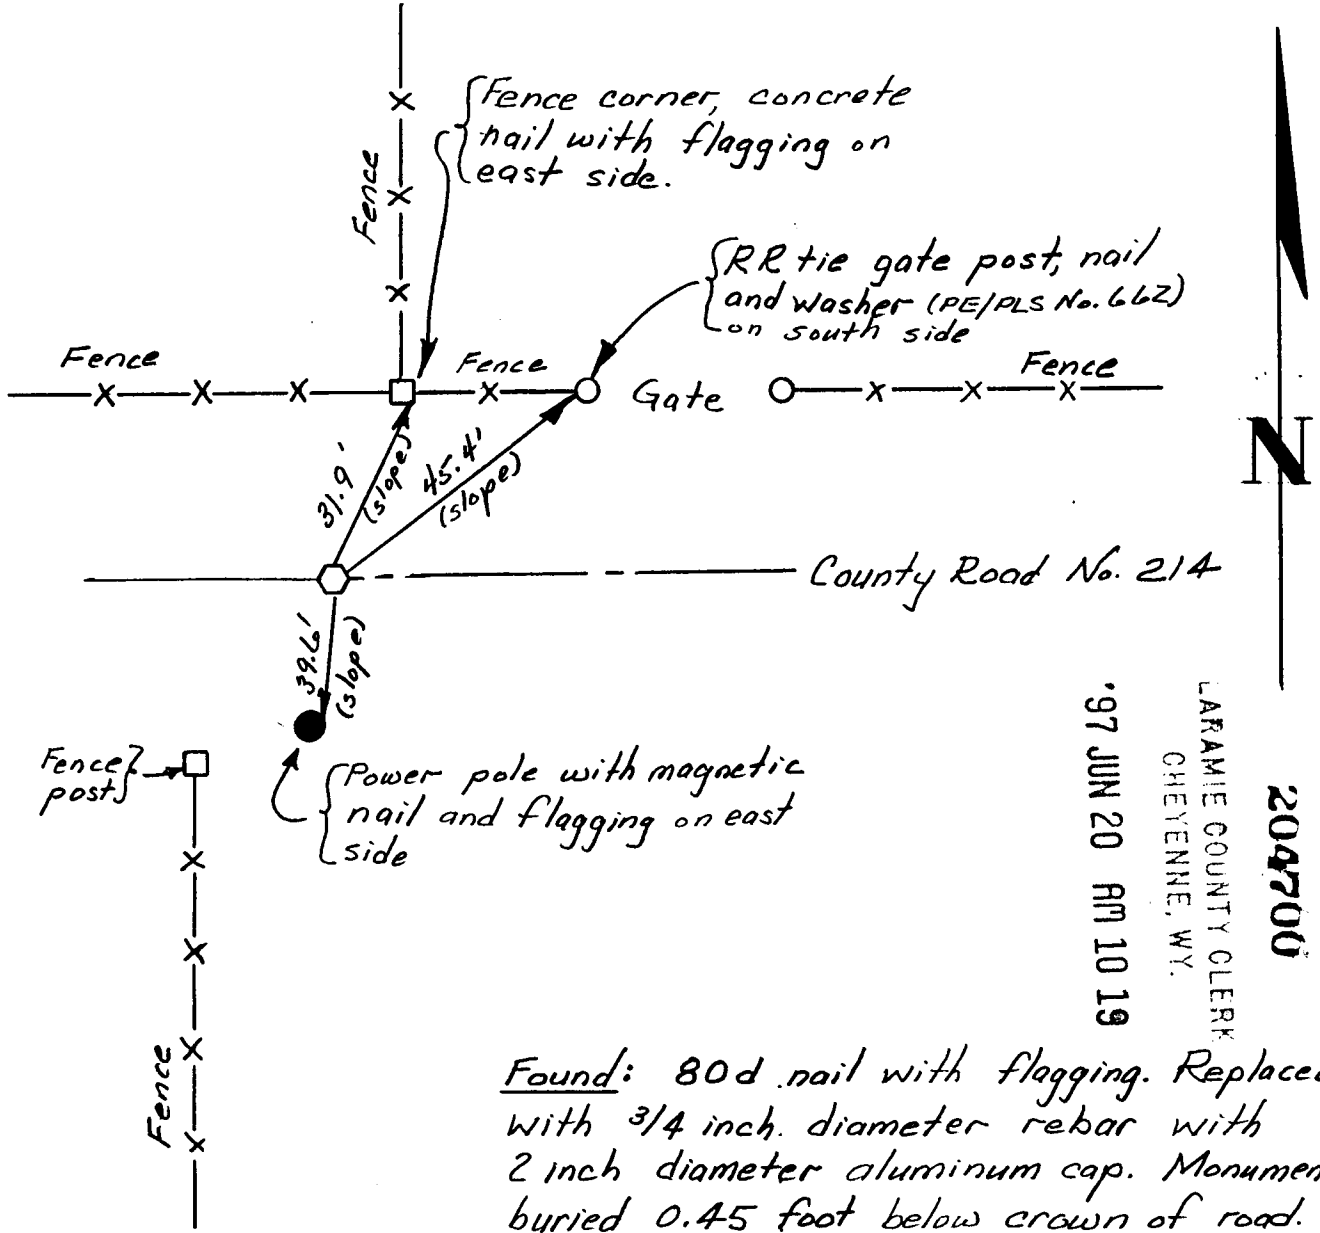 Fence corner, concrete
nail with flagging on
east side.
Fence
RR tie gate post, nail
and washer (PE/PLS No. 662)
on south side
Fence
Fence
Gate
Fence
N
31.9'
(slope)
45.4'
(slope)
County Road No. 214
39.6'
(slope)
Fence
post
Power pole with magnetic
nail and flagging on east
side
Fence
LARAMIE COUNTY CLERK
CHEYENNE, WY.
'97 JUN 20 AM 10 19
204700
Found: 80d nail with flagging. Replaced
with 3/4 inch. diameter rebar with
2 inch diameter aluminum cap. Monumen
buried 0.45 foot below crown of road.